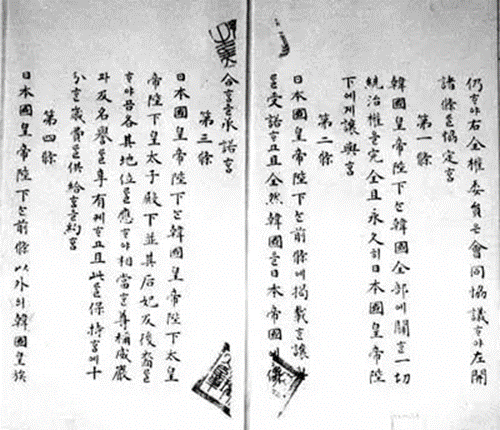 仍ᄒᆞ야右全權委員은會同協議ᄒᆞ야左開
諸條를協定홈
第一條
韓國皇帝陛下ᄂᆞᆫ韓國全部에關ᄒᆞᆫ一切
統治權을完全且永久히日本國皇帝陛
下에게讓與홈
第二條
日本國皇帝陛下ᄂᆞᆫ前條에揭載ᄒᆞᆫ讓與
를受諾ᄒᆞ고且全然韓國을日本帝國에倂
合홈을承諾홈
第三條
日本國皇帝陛下ᄂᆞᆫ韓國皇帝陛下太皇
帝陛下皇太子殿下並其后妃及後裔로
ᄒᆞ야곰各其地位를應ᄒᆞ야相當ᄒᆞᆫ尊稱威嚴
과及名譽를享有케ᄒᆞ고且此를保持홈에十
分ᄒᆞᆫ歲費를供給홈을約홈
第四條
日本國皇帝陛下ᄂᆞᆫ前條以外의韓國皇族